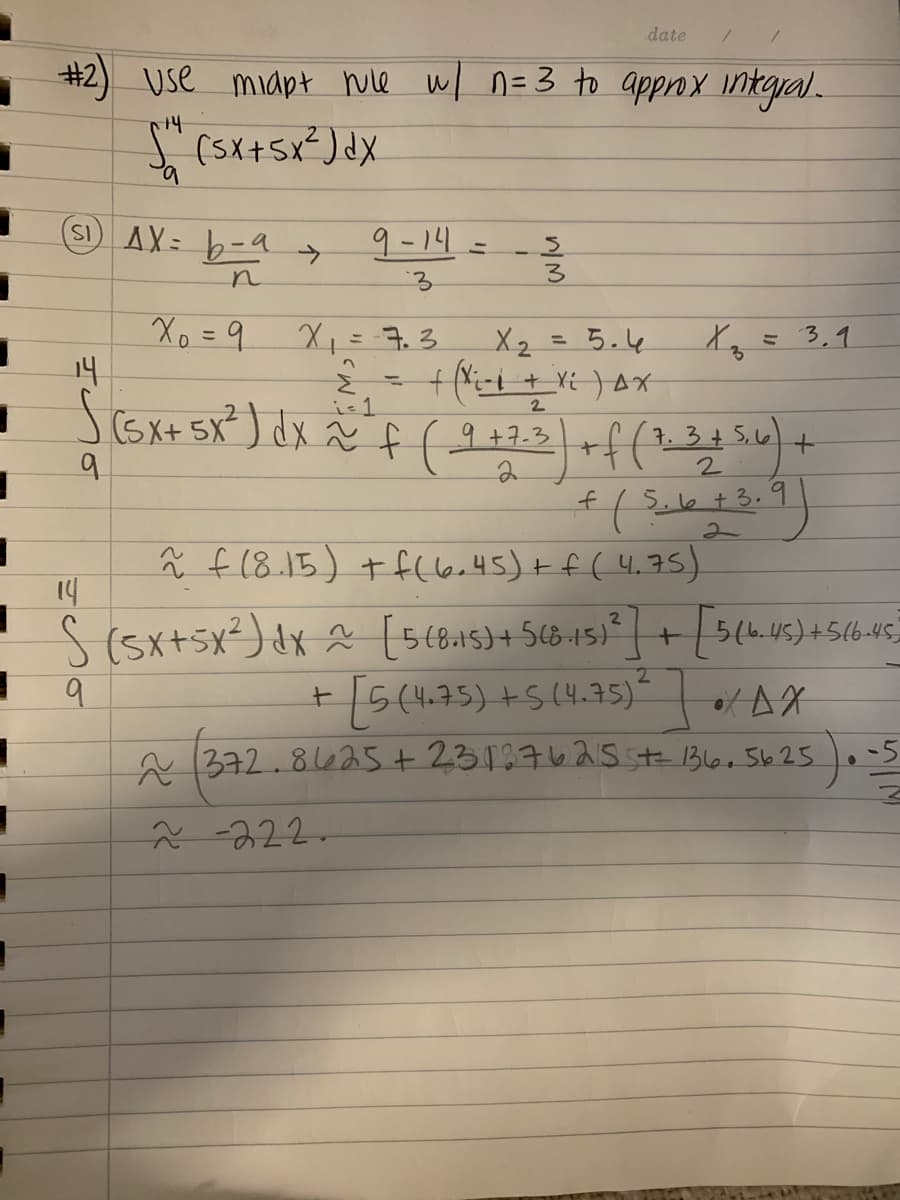 date / /
#2) use midpt rule w/ n=3 to approx integral.
∫₉¹⁴ (5x+5x²)dx
S1 ΔX = b-a/n → 9-14/3 = -5/3
X₀ = 9 X₁ = 7.3 X₂ = 5.6 X₃ = 3.9
n Σ i=1 = f(Xi-1 + Xi / 2) ΔX
∫₉¹⁴ (5x+5x²) dx ≈ f(9+7.3/2) + f(7.3+5.6/2) +
f(5.6+3.9/2)
≈ f(8.15) + f(6.45) + f(4.75)
∫₉¹⁴ (5x+5x²)dx ≈ [5(8.15)+5(8.15)²] + [5(6.45)+5(6.45)
+ [5(4.75)+5(4.75)²] • ΔX
≈ (372.8625 + 231.7625 + 136.5625) • -5/3
≈ -222.